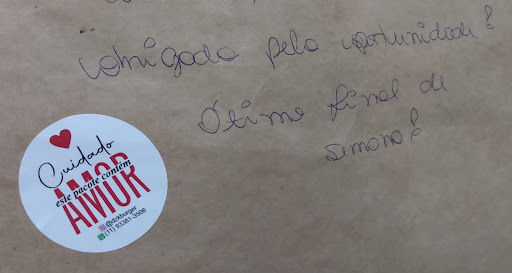 obrigada pela oportunidade!
Ótimo final de
semana!
Cuidado
este pacote contém
AMOR
@dxxburger
(11) 93381-3508